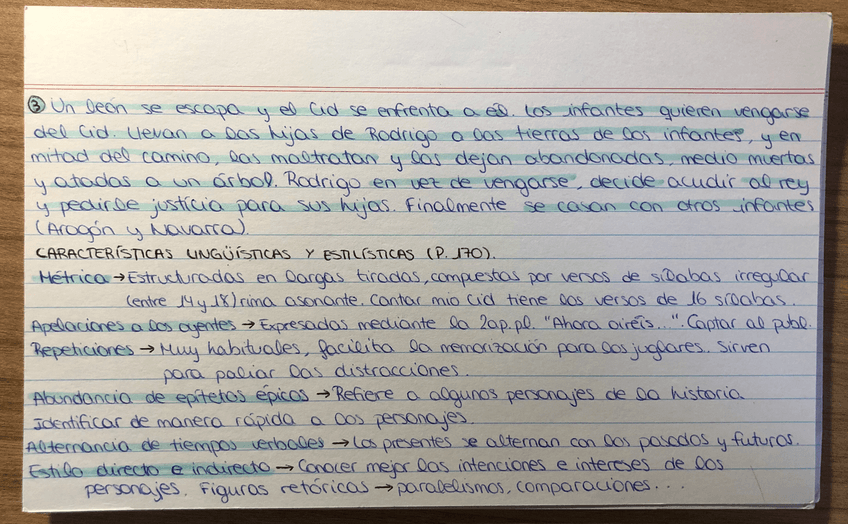 ③ Un león se escapa y el Cid se enfrenta a él. Los infantes quieren vengarse
del Cid. Llevan a las hijas de Rodrigo a las tierras de los infantes, y en
mitad del camino, las maltratan y las dejan abandonadas, medio muertas
y atadas a un árbol. Rodrigo en vez de vengarse, decide acudir al rey
y pedirle justicia para sus hijas. Finalmente se casan con otros infantes
(Aragón y Navarra).
CARACTERÍSTICAS LINGÜÍSTICAS Y ESTILÍSTICAS (P. 170).
Métrica → Estructuradas en largas tiradas, compuestas por versos de sílabas irregular
(entre 14 y 18) rima asonante. Cantar mio Cid tiene los versos de 16 sílabas.
Apelaciones a los oyentes → Expresadas mediante la 2a p. pl. "Ahora oiréis...". Captar al publ.
Repeticiones → Muy habituales, facilita la memorización para los juglares. Sirven
para paliar las distracciones.
Abundancia de epítetos épicos → Refiere a algunos personajes de la historia.
Identificar de manera rápida a los personajes.
Alternancia de tiempos verbales → Los presentes se alternan con los pasados y futuros.
Estilo directo e indirecto → Conocer mejor las intenciones e intereses de los
personajes. Figuras retóricas → paralelismos, comparaciones...